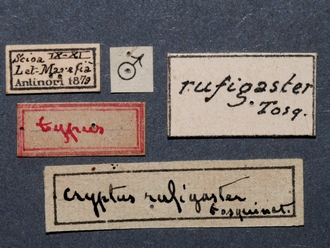 Scioa IX-XI
Let-Marefià
Antinori 1879
♂
rufigaster
Tosq.
typus
Cryptus rufigaster
tosquinet.